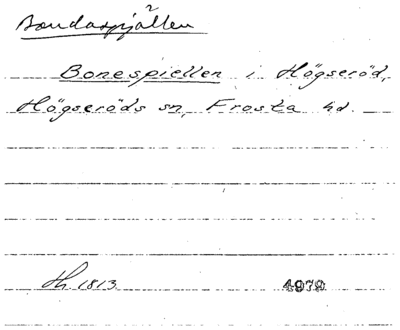 Bondaspjällen
Bonespiellen i Högseröd,
Högseröds sn, Frosta hd.
Th 1813
4979